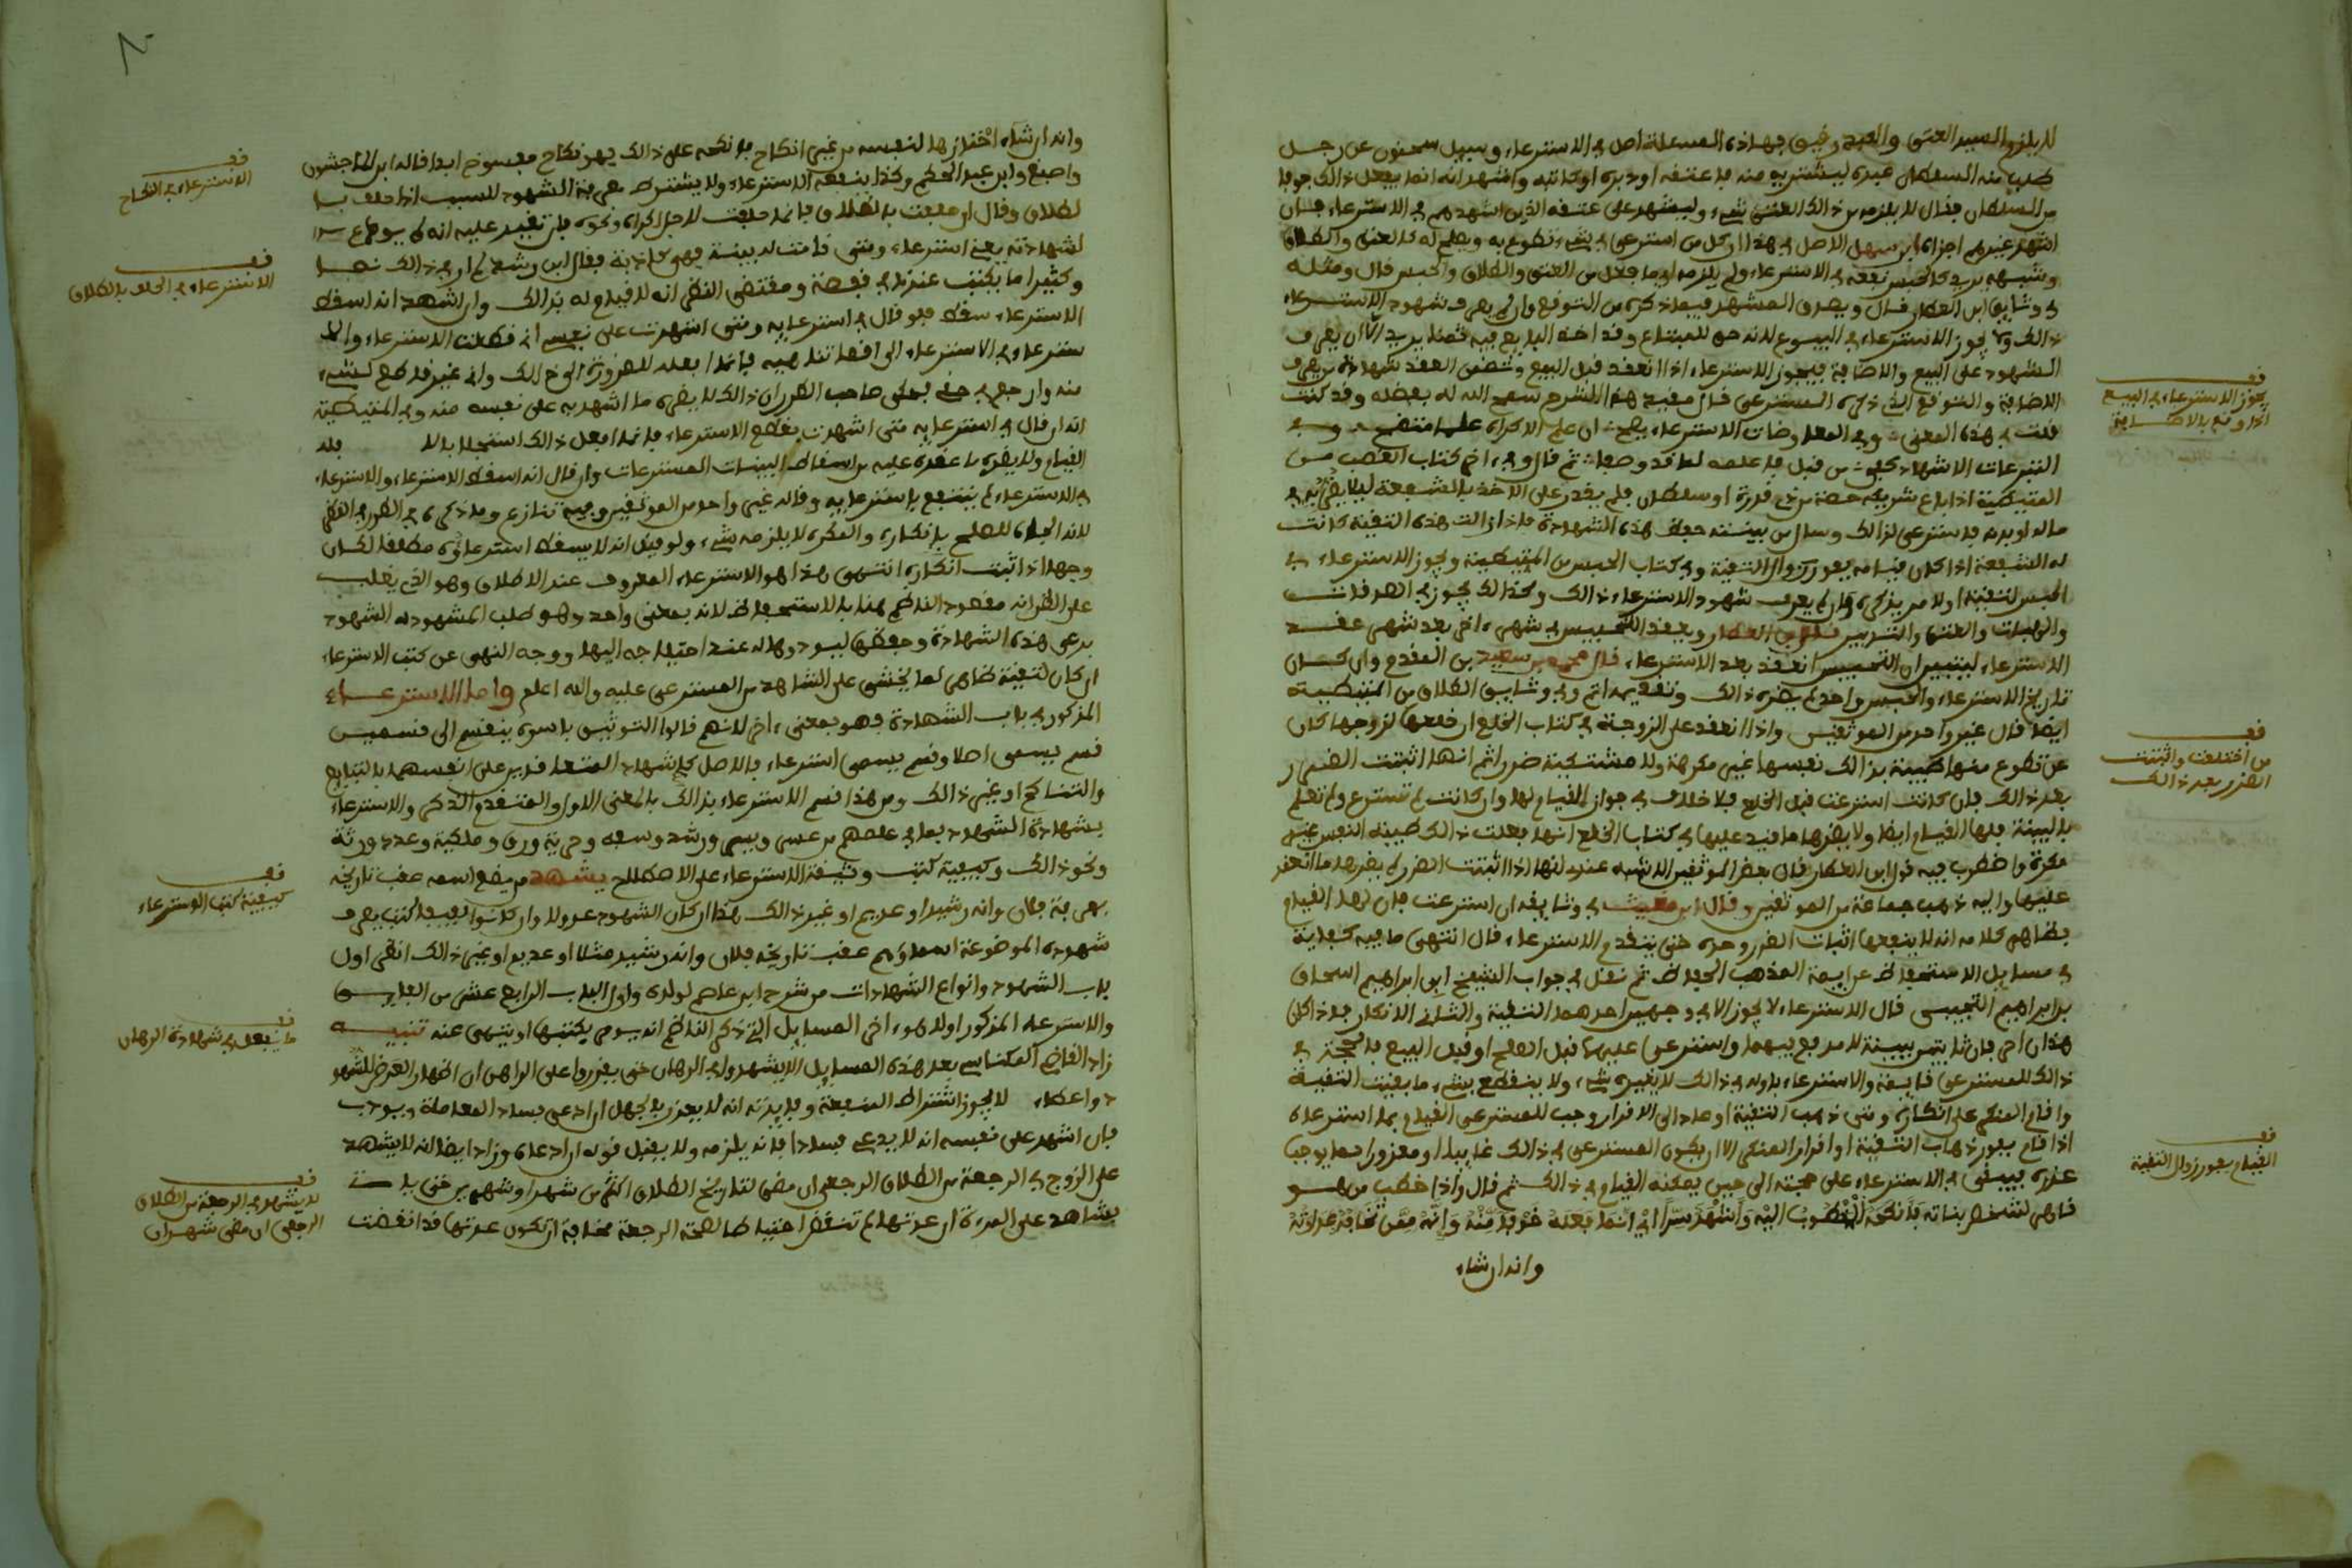 لا يلزم السيد العتق والعبد رقيق فهاذه المسئلة اصل في الاسترعاء وسيل سحنون عن رجل
طلب منه السلطان عبده ليشتريه منه فاعتقه او دبره او كاتبه واشهد انه انما يفعل ذالك خوفا
من السلطان فقال لا يلزمه من ذالك العتق شيء وليشهد على عتقه الذين اشهدهم في الاسترعاء فان
اشهد غيرهم اجزاه ابن سهل الاصل في هذا ان كل من استرعى في شيء تطوع به ويصلح له كالعتق والطلاق
وشبهه يريد كالحبس نفعه في الاسترعاء ولم يلزمه اي ما فعل من العتق والطلاق والحبس قال ومثله
في وثايق ابن العطار قال ويصدق المشهد فيما ذكره من التوقع وان لم يعرف شهود الاسترعاء
ذالك ولا يجوز الاسترعاء في البيوع لانه حق للمبتاع وقد اخذ البايع فيه ثمنا يريد الا ان يعرف
الشهود على البيع والاخافة فيجوز الاسترعاء اذا انعقد قبل البيع وتضمن العقد شهادة من يعرف
الاخافة والتوقع الذي ذكره المسترعى
قلت في هذه المعنى وفي المعاوضات الاسترعاء يصح ان علم الاكراه
التبرعات الاشهاد من قبل ثم قال وفي اخر كتاب الغصب من
المتيطية اذا باع شريكه حصة من ذي قدرة او سلطان فلم يقدر على الاخذ بالشفعة ليلا يضر به في
ماله او بدنه فاسترعى لذالك وسال من بينته حفظ هذه الشهادة فاذا زالت هذه التقية كانت
له الشفعة اذا كان قيامه بفور زوال التقية وفي كتاب الحبس من المتيطية ويجوز الاسترعاء في
الحبس لتقية او لامر يذكره وان لم يعرف شهود الاسترعاء ذالك وكذالك يجوز في الصدقات
والهبات والعتق والتدبير قال ابن العطار ويعقد التحبيس في شهر اخر بعد شهر عقد
الاسترعاء ليتبين ان التحبيس انعقد بعد الاسترعاء قال محمد بن سعيد بن المقدم وان كان
تاريخ الاسترعاء والحبس واحد لم يضره ذالك وتقديمه اتم وفي وثايق الطلاق من المتيطية
ايضا قال غير واحد من الموثقين واذا انعقد على الزوجة في كتاب الخلع ان خلعها لزوجها كان
عن تطوع منها طيبة بذالك نفسها غير مكرهة ولا مشتكية ضررا ثم انها اثبتت الضرر
بعد ذالك فان كانت استرعت قبل الخلع فلا خلاف في جواز القيام لها وان كانت لم تسترع ولم تعلم
بالبينة فلها القيام ايضا ولا يضرها ما قيد عليها في كتاب الخلع انها فعلت ذالك طيبة النفس غير
مكرهة واضطرب فيه قول ابن العطار قال بعض الموثقين الاشبه عندي انها اذا اثبتت الضرر لم يضرها ما انعقد
عليها واليه ذهب جماعة من الموثقين وقال ابن مغيث في وثايقه ان استرعت فان لها القيام
بظاهر كلامه انه لا ينفعها اثبات الضرر وحده حتى يتقدم الاسترعاء قال انتهى ما فيه كفاية
في مسايل الاستحفاظ عن ايمة المذهب الحفاظ ثم نقل في جواب الشيخ ابي ابراهيم اسحاق
بن ابراهيم التجيبي قال الاسترعاء لا يجوز الا في وجهين احدهما التقية والثاني الانكار فاذا كان
هذان اخر فان ثابتين ببينة لا مدفع فيهما واسترعى عليهما قبل الصلح او قبل البيع فالحجة في
ذالك للمسترعي قايمة والاسترعاء باوله في ذالك لا يغيره شيء ولا ينقطع بشيء ما بقيت التقية
واقام المنكر على انكاره ومتى ذهبت التقية او عاد الى الاقرار وجب للمسترعي القيام بما استرعاه
اذا قام بفور ذهاب التقية او اقرار المنكر الا ان يكون المسترعي في ذالك غايبا او معذورا بما يوجب
عذره فيبقى في الاسترعاء على حجته الى حين يمكنه القيام في ذالك ثم قال واذا خطب من هو
قاهر لشخص بناته فانكحه المخطوب اليه واشهد سرا اني انما فعله خوفا منه وانه ممن تخاف عداوته
وانه ان شاء
فف
يجوز الاسترعاء في البيع
اذا وقع بالاخافة
فف
من اختلعت واثبتت
الضرر بعد ذالك
فف
القيام بفور زوال التقية
وانه ان شاء اختارها لنفسه من غير انكاح فانكحه على ذالك فهو نكاح مفسوخ ابدا قاله ابن الماجشون
واصبغ وابن عبد الحكم وكذا ينفعه الاسترعاء ولا يشترط معرفة الشهود للسبب اذا حلف با
لطلاق وقال ان حلفت بالطلاق فانما حلفت لاجل اكراه ونحوه
لشهادته يعني استرعاء ومتى قامت له بينة فهي كاذبة فقال ابن رشد
وكثيرا ما يكتب عندنا في قفصة ومقتضى النظر انه لا قيام له بذالك وان اشهد انه اسقط
الاسترعاء سقط فلو قال في استرعايه ومتى اشهدت على نفسي اني قطعت الاسترعاء والا
سترعاء في الاسترعاء الى اقصا تناهيه فانما افعله للضرورة الى ذالك واني غير قاطع لشيء
منه وارجع في حقي فحكى صاحب الطرر ان ذالك لا يضره ما اشهد به على نفسه منه وفي المتيطية
انه ان قال في استرعايه متى اشهدت بقطع الاسترعاء فانما افعل ذالك استجلابا لا فله
القيام ولا يضره ما عقده عليه من اسقاط البينات المسترعات وان قال انه اسقط الاسترعاء والاسترعاء
في الاسترعاء لم ينتفع باسترعايه وقاله غير واحد من الموثقين وفيه تنازع وما ذكره في الطرر في النظر
لانه الجاه للصلح بانكاره والمكره لا يلزمه شيء ولو قيل انه لا يسقط استرعاؤه مطلقا لكان
وجها اذا ثبت انكاره انتهى هذا هو الاسترعاء المعروف عند الاطلاق وهو الذي يغلب
على الظن انه مقصود الناظم هنا بالاستحفاظ لانه بمعنى واحد وهو طلب المشهود له الشهود
برعي هذه الشهادة وحفظها ليودوها له عند احتياجه اليها ووجه النهى عن كتب الاسترعاء
ان كان لتقية ظاهر لما يخشى على الشاهد من المسترعى عليه والله اعلم واما الاسترعاء
المذكور في باب الشهادة فهو بمعنى اخر لانهم قالوا التوثيق باسره ينقسم الى قسمين
قسم يسمى اصلا وقسم يسمى استرعاء فالاصل كاشهاد المتعاقدين على انفسهما بالتبايع
والتناكح او غير ذالك ومن هذا قسم الاسترعاء بذالك بالمعنى الاول والمتقدم الذكر والاسترعاء
بشهادة الشهود بما في علمهم من عسر ويسر ورشد وسفه وحرية ورق وملكية وعدد ورثة
ونحو ذالك وكيفية كتب وثيقة الاسترعاء على الاصطلاح يشهد من يضع اسمه عقب تاريخه
بمعرفة فلان وانه رشيد او عديم او غير ذالك هذا ان كان الشهود عدولا وان كانوا لفيفا كتب يعرف
شهوده الموضوعة اسماؤهم عقب تاريخه فلان وانه رشيد مثلا او عديم او غير ذالك انظر اول
باب الشهود وانواع الشهادات من شرح ابن عاصم لولده واول الباب الرابع عشر من الفايق
والاسترعاء المذكور اولا هو اخر المسايل التي ذكر الناظم انه يومر بكتبها او ينهى عنه تنبيه
زاد القاضي المكناسي بعد هذه المسايل الا يشهدوا في الرهان حتى يقرروا على الراهن ان اظهار القرض للشهو
د واعطاء لا يجوز اشتراط المنفعة وفايدته انه لا يعذر بالجهل ان ادعى فساد المعاملة ويودب
فان اشهد على نفسه انه لا يدعي فسادا فانه يلزمه ولا يقبل قوله ان ادعاه وزاد ايضا انه لا يشهد
على الزوج في الرجعة من الطلاق الرجعي ان مضى لتاريخ الطلاق اكثر من شهر او شهرين حتى
يشاهد على المرءة ان عدتها لم تنقض احتياطا لصحة الرجعة مخافة ان تكون عدتها قد انقضت
فف
الاسترعاء في النكاح
فف
الاسترعاء في الحلف بالطلاق
فف
كيفية كتب الاسترعاء
فف
ما يفعل في شهادة الرهان
فف
لا يشهد في الرجعة من الطلاق
الرجعي ان مضى شهران